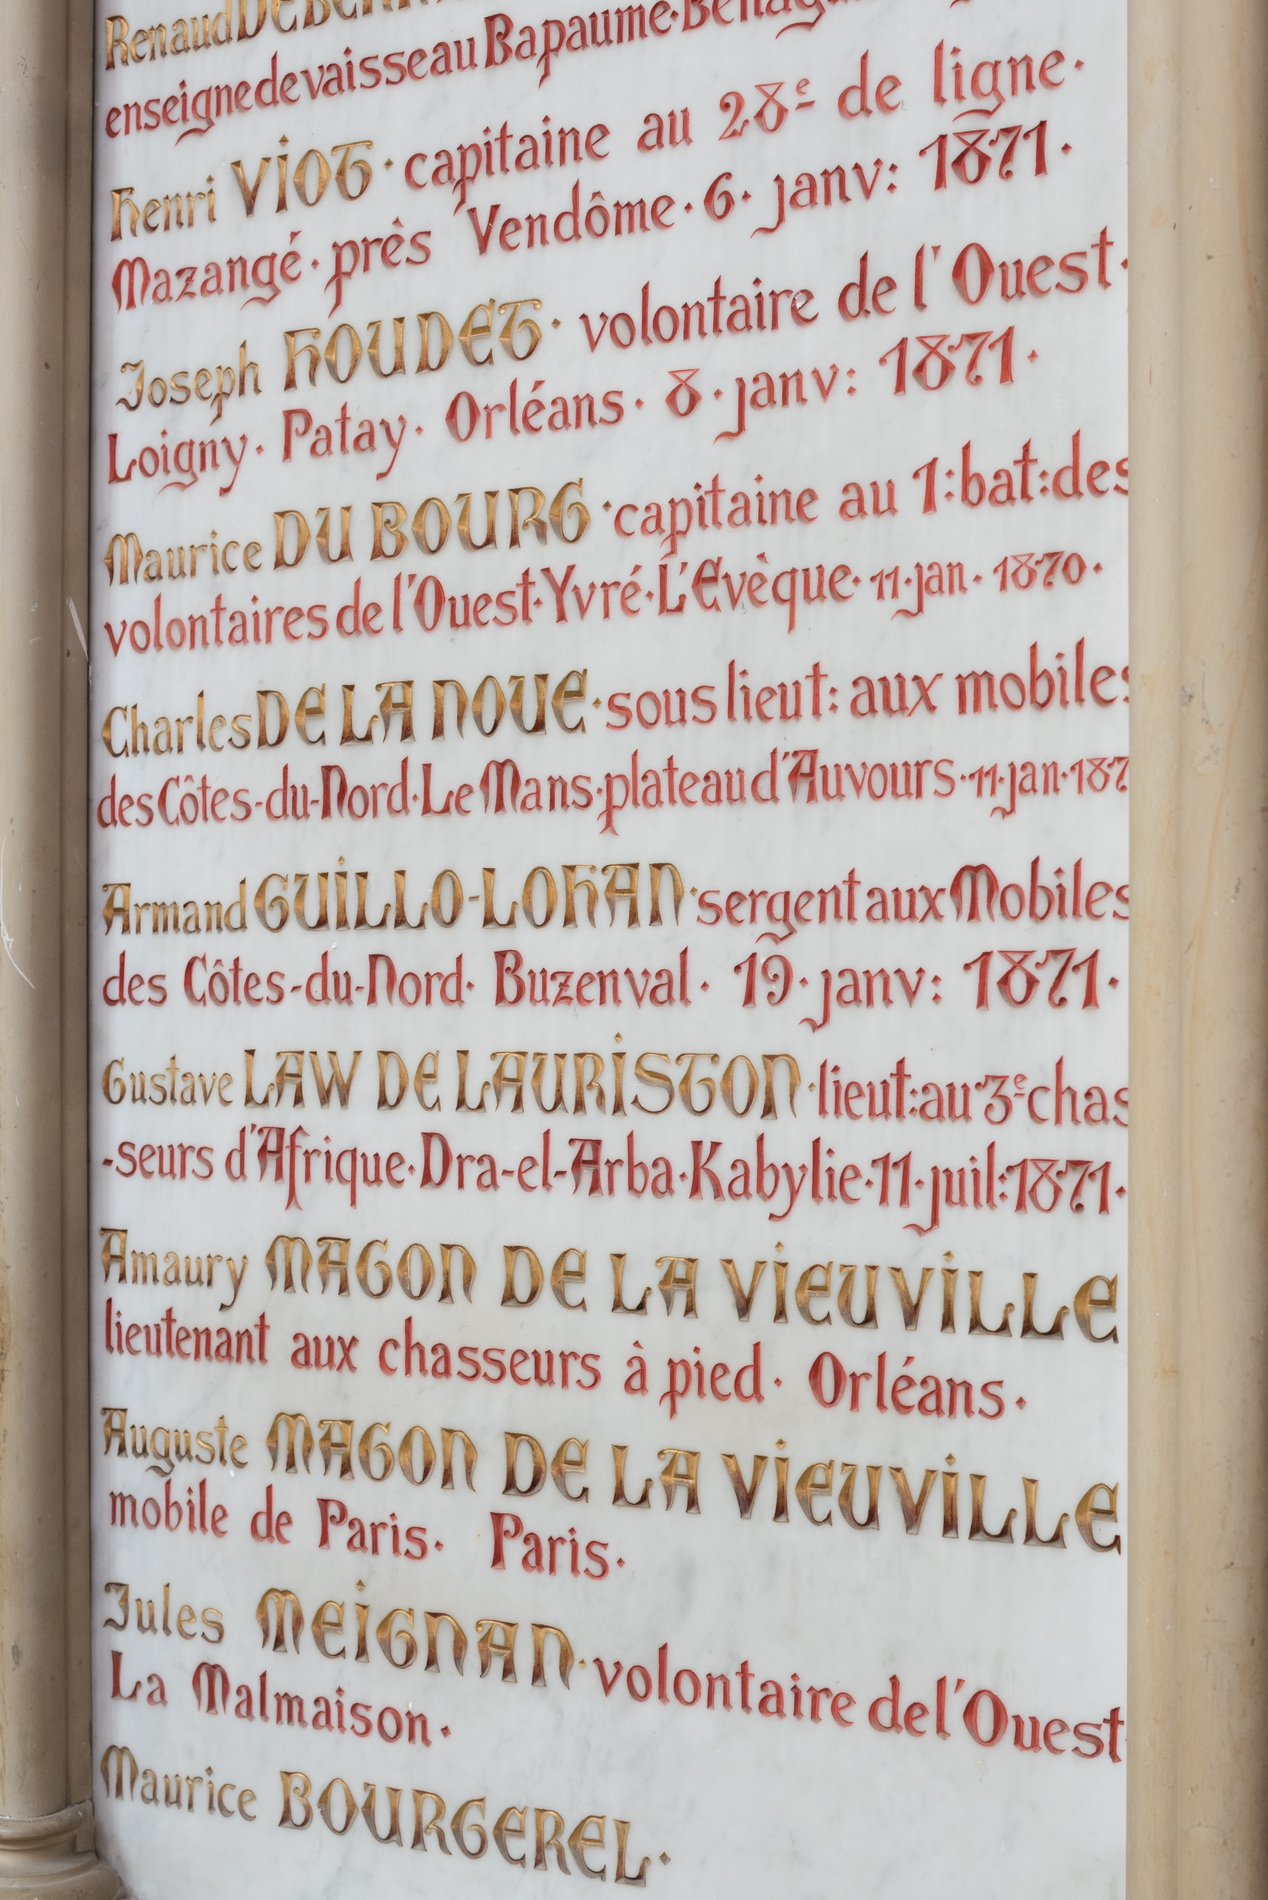 Renaud
enseigne de vaisseau Bapaume·
Henri VIOT · capitaine au 28e de ligne·
Mazangé · près Vendôme · 6 · janv: 1871 ·
Joseph HOUDET · volontaire de l'Ouest·
Loigny · Patay · Orléans · 8 · janv: 1871 ·
Maurice DU BOURG · capitaine au 1:bat:des
volontaires de l'Ouest·Yvré·L'Evèque· 11·jan· 1870·
Charles DE LA NOUE·sous lieut: aux mobiles
des Côtes-du-Nord·Le Mans·plateau d'Auvours·11·jan·187
Armand GUILLO-LOHAN·sergent aux Mobiles
des Côtes-du-Nord· Buzenval· 19·janv: 1871·
Gustave LAW DE LAURISTON·lieut:au 3e chas
-seurs d'Afrique·Dra-el-Arba·Kabylie·11·juil:1871·
Amaury MAGON DE LA VIEUVILLE
lieutenant aux chasseurs à pied· Orléans·
Auguste MAGON DE LA VIEUVILLE
mobile de Paris· Paris·
Jules MEIGNAN·volontaire de l'Ouest
La Malmaison·
Maurice BOURGEREL·